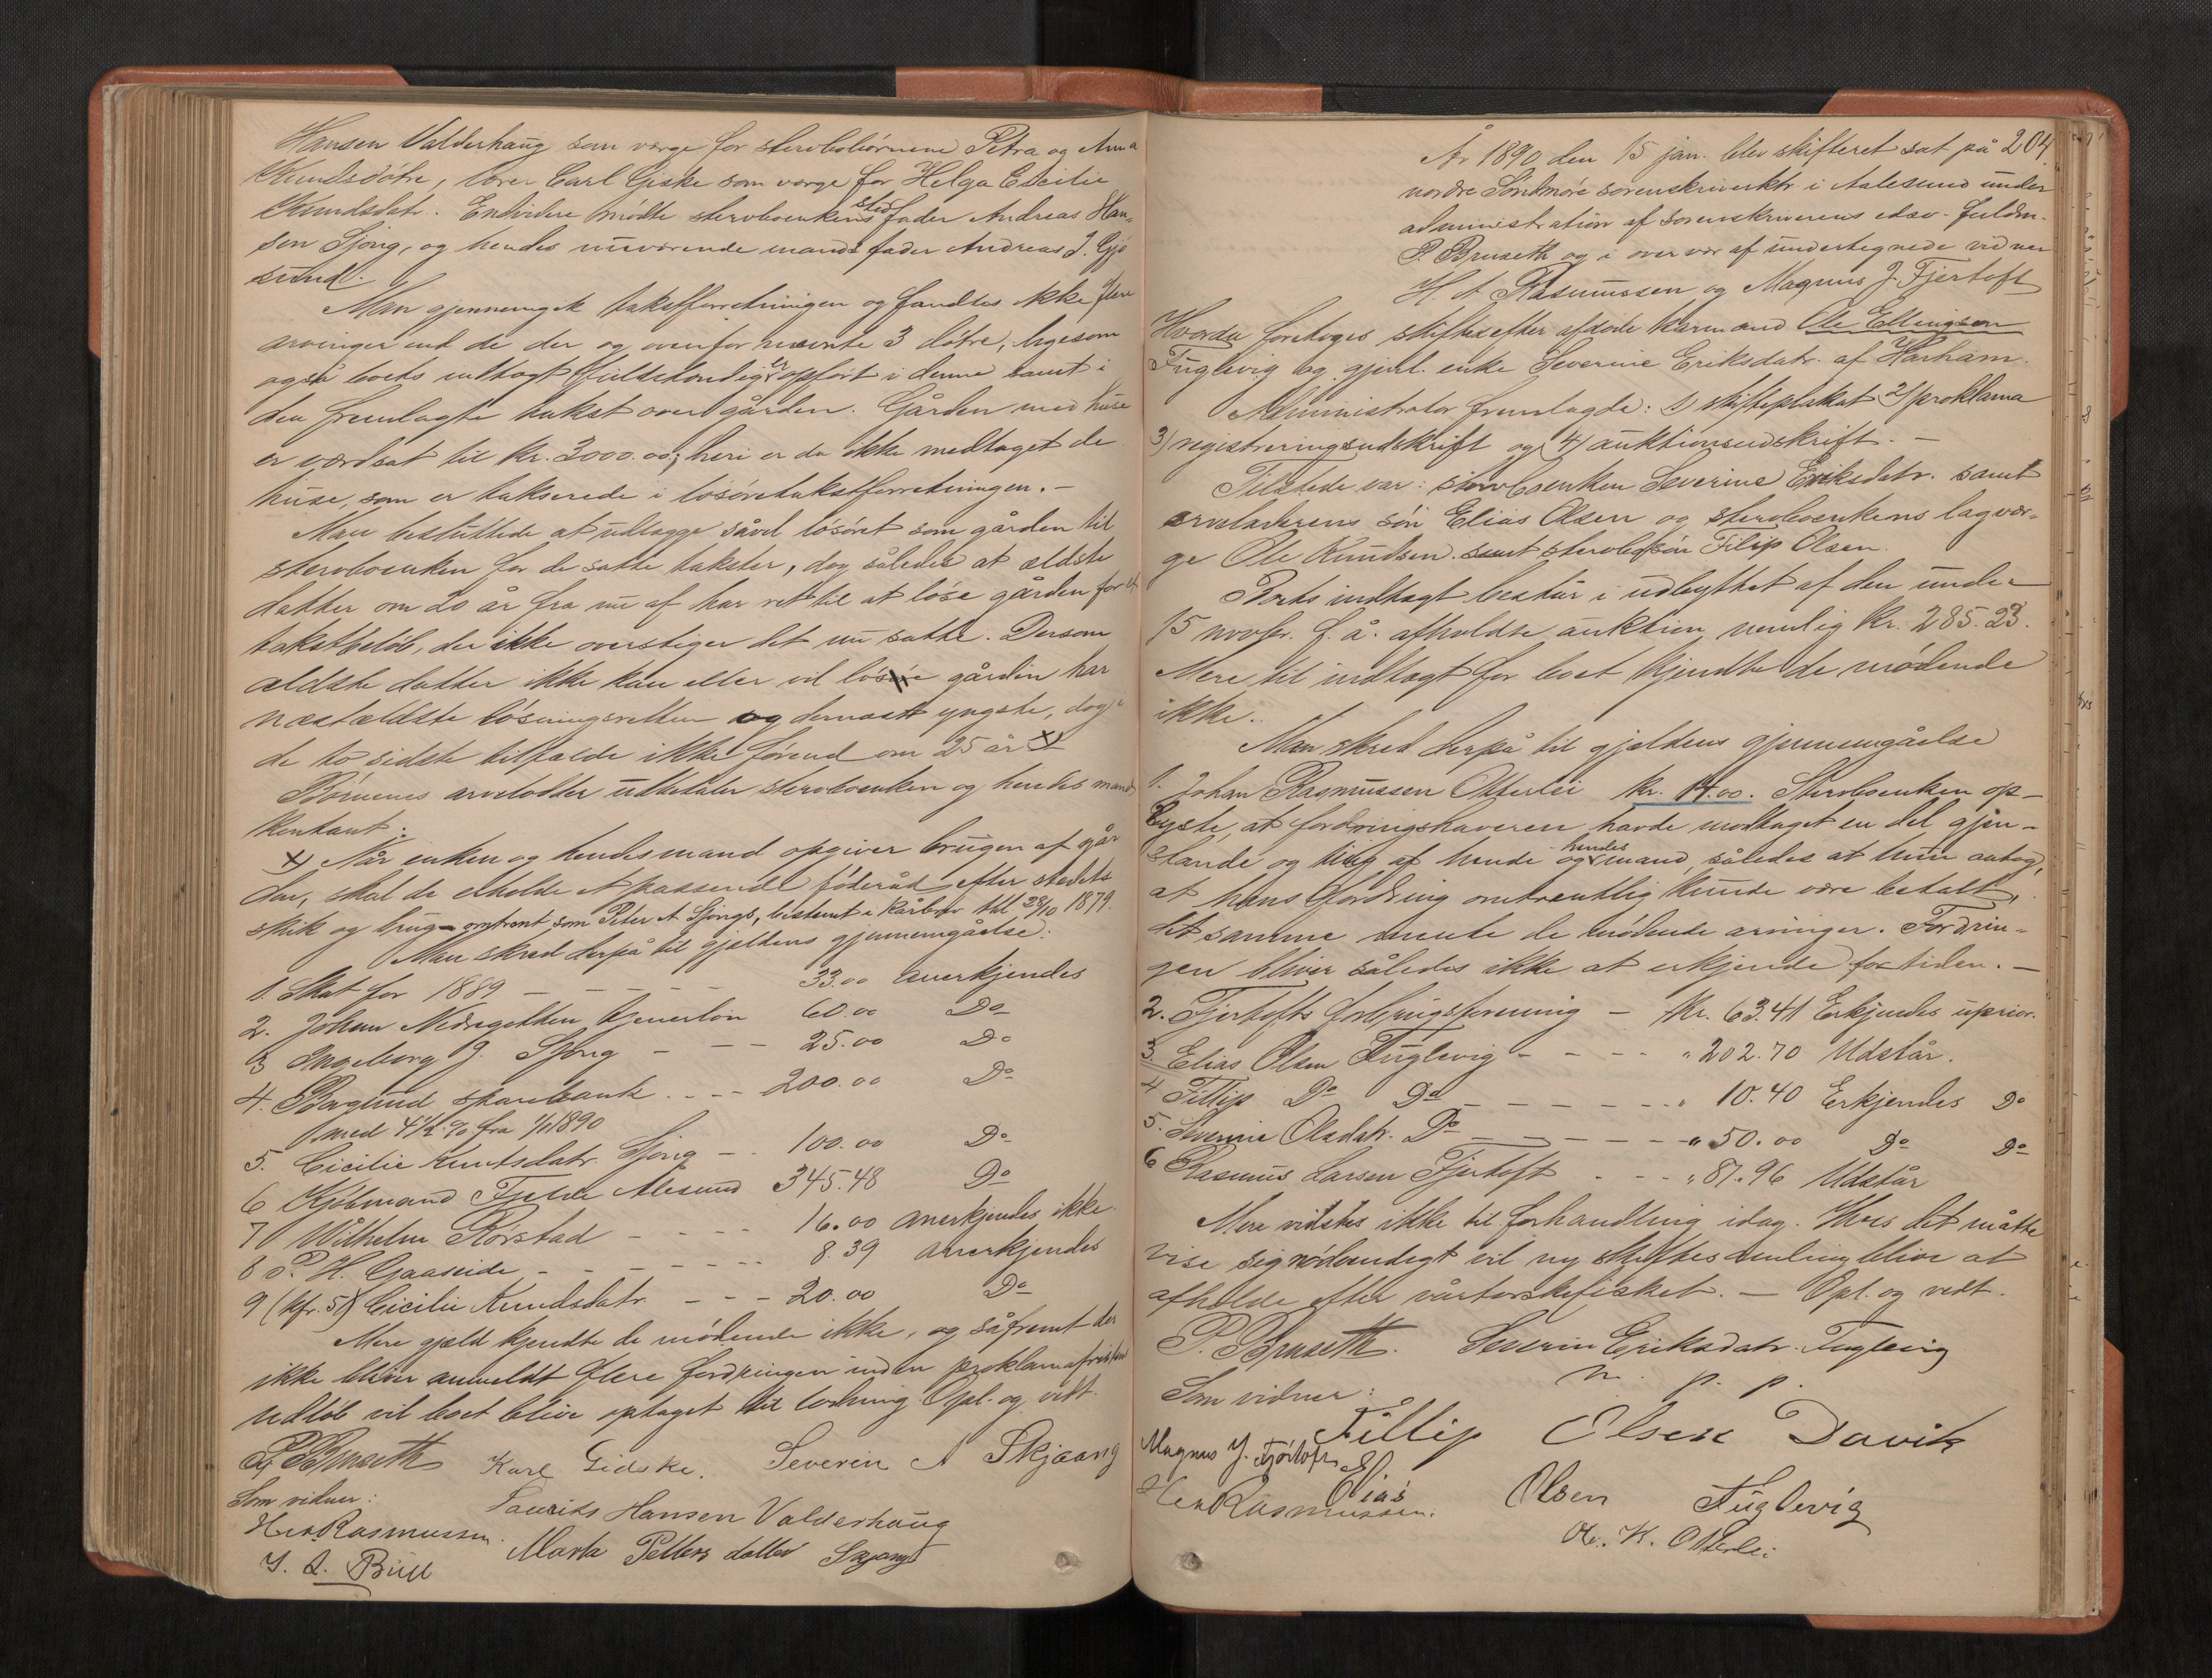 Hansen Valderhaug som værge for stervbobørnene Petra og Anna
Knudsdøtre, lærer Carl Giske som værge for Helga Cecilie
Knudsdatr. Endvidere mødte stervboenkens stedfader Andreas Han-
sen Sjong, og hendes nuværende mands fader Andreas J. Gjø
sund.
Man gjennemgik takstforretningen og fandtes ikke flere
arvinger end de der og ovenfor nævnte 3 døtre, ligesom
også boets indtægt fuldstændig er opført i denne samt i
den fremlagte takst over gården. Gården med huse
er værdsat til kr. 3000.00; heri er da ikke medtaget de
huse, som er takserede i løsøretakstforretningen. -
Man besluttede at udlægge såvel løsøret som gården til
stervboenken for de satte takster, dog således at ældste
datter om 20 år fra nu af har ret til at løse gården for et
takstbeløb, der ikke overstiger det nu satte. Dersom
ældste datter ikke kan eller vil løse gården har
næstældste løsningsretten og dernæst yngste, dog i
de to sidste tilfælde ikke førend om 25 år x)
Børnenes arvelodder udbetaler stervboenken og hendes mand
kontant.
x) Når enken og hendes mand opgiver brugen af går
den, skal de erholde et passende føderåd efter stedets
skik og brug - omtrent som Peter A Sjongs, bestemt i kårbrev thl 28/10 1879.
Man skred derpå til gjældens gjennemgåelse:
1. Skat for 1889 - - - - - 33.00 anerkjendes
2. Johan Nedregotten Gjeverløn 60.00 Do
3 Ingeborg J. Sjong - - - 25.00 Do
4. Borgund sparebank - - - 200.00 Do
med 4½ % fra 1/1 1890
5. Cicilie Knutsdatr. Sjong - - 100.00 Do
6 Kjøbmand Fjelde Alesund 345.48 Do
7 Wilhelm Rørstad - - - - 16.00 anerkjendes ikke.
8 P. H. Gaaseide - - - - - 8.39 anerkjendes
9 (kfr. 5) Cicilie Knudsdatr. - - - 20.00 Do
Mere gjæld kjendte de mødende ikke, og såfremt der
ikke bliver anmeldt flere fordringer inden proklamafristens
udløb vil boet blive optaget til lodning. Opl. og vedt.
P. Bruseth Karl Gidske. Severin A Skjaang
Som vidner: Lauritz Hansen Valderhaug
Her Rasmussen. Marta Petters datter Skjong
J. A. Bull
204
År 1890 den 15 jan. blev skifteret sat på
nordre Søndmøre sorenskriverktr. i Aalesund under
administration af sorenskriverens edsv. fuldm.
P. Bruseth og i overvær af undertegnede vidner
H. A Rasmussen og Magnus J. Fjertoft
Hvorda foretoges skiftet efter afdøde kårmand Ole Ellingsen
Fuglevig og gjenl. enke Severine Eriksdatr. af Harham.
Administrator fremlagde: 1) skifteplakat 2) proklama
3) registreringsudskrift og 4) auktionsudskrift. -
Tilstede var: stervboenken Severine Eriksdatr. samt
arveladerens søn Elias Olsen og stervboenkens lagvær-
ge Ole Knudsen samt sterbosøn Filip Olsen.
Boets indtægt består i udbyttet af den under
15 novbr. f. å. afholdte auktion, nemlig kr. 285.23.
Mere til indtægt for boet kjendte de mødende
ikke.
Man skred derpå til gjældens gjennemgåelse
1. Johan Rasmussen Otterlei kr. 14.00. Sterboenken op-
lyste, at fordringshaveren havde modtaget en del gjen-
stande og ting af hende og hendes mand, således at hun antog,
at hans fordring omtrentlig kunde være betalt,
det samme mente de mødende arvinger. Fordrin-
gen bliver således ikke at erkjende for tiden. -
2. Fjertofts forbrugsforening - kr. 63.41 Erkjendes uprior.
3. Elias Olsen Fuglevig - - - - " 202.70 Udstår.
4 Fillip Do Do - - - - - - " 10.40 Erkjendes Do
5. Severine Olsdatr. Do - - - - " 50.00 Do Do
6 Rasmus Larsen Fjertoft - - - " 87.96 Udstår
Mere vidstes ikke til forhandling idag. Hvis det måtte
vise sig nødvendigt vil ny skiftesamling blive at
afholde efter vårtorskefisket. - Opl. og vedt.
P. Bruseth. Severin Eriksdatr. Fuglevig
m. p. p.
Som vidner:
Fillip Olsen Davik
Magnus J. Fjørtoft
Elias Olsen Fuglevig
Her Rasmussen.
Ole. K. Otterlei